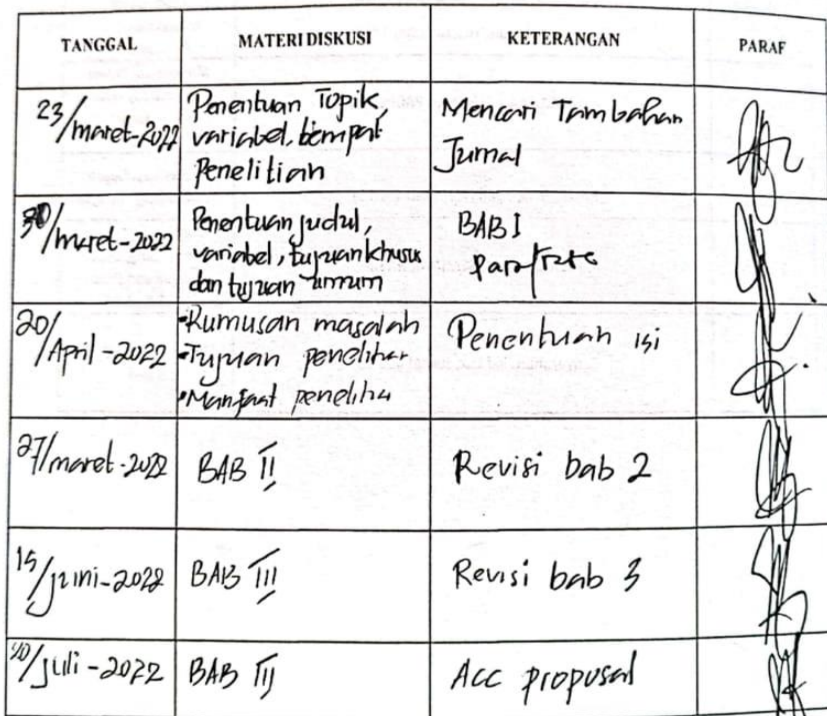 TANGGAL MATERI DISKUSI KETERANGAN PARAF
23/maret-2022
Penentuan Topik,
variabel, tempat
Penelitian
Mencari Tambahan
Jurnal
30/maret-2022
Penentuan judul,
variabel, tujuan khusus
dan tujuan umum
BAB I
20/April-2022
•Rumusan masalah
•Tujuan penelitian
•Manfaat penelitia
Penentuan isi
27/maret-2022
BAB II
Revisi bab 2
15/juni-2022
BAB III
Revisi bab 3
/juli-2022
BAB III
Acc proposal